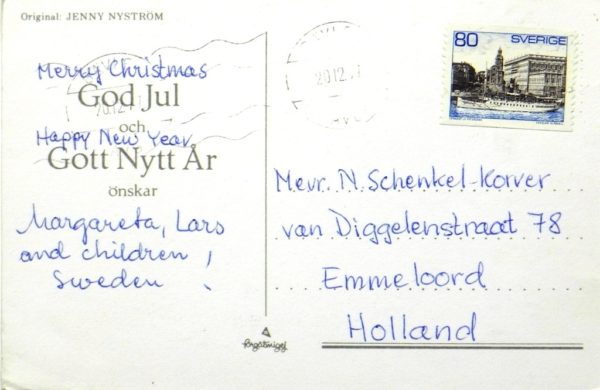 Original: JENNY NYSTRÖM
Merry Christmas
God Jul
och
Happy New Year
Gott Nytt År
önskar
Margareta, Lars
and children !
Sweden
80 SVERIGE
20.12.7
Mevr. N. Schenkel-Korver
van Diggelenstraat 78
Emmeloord
Holland